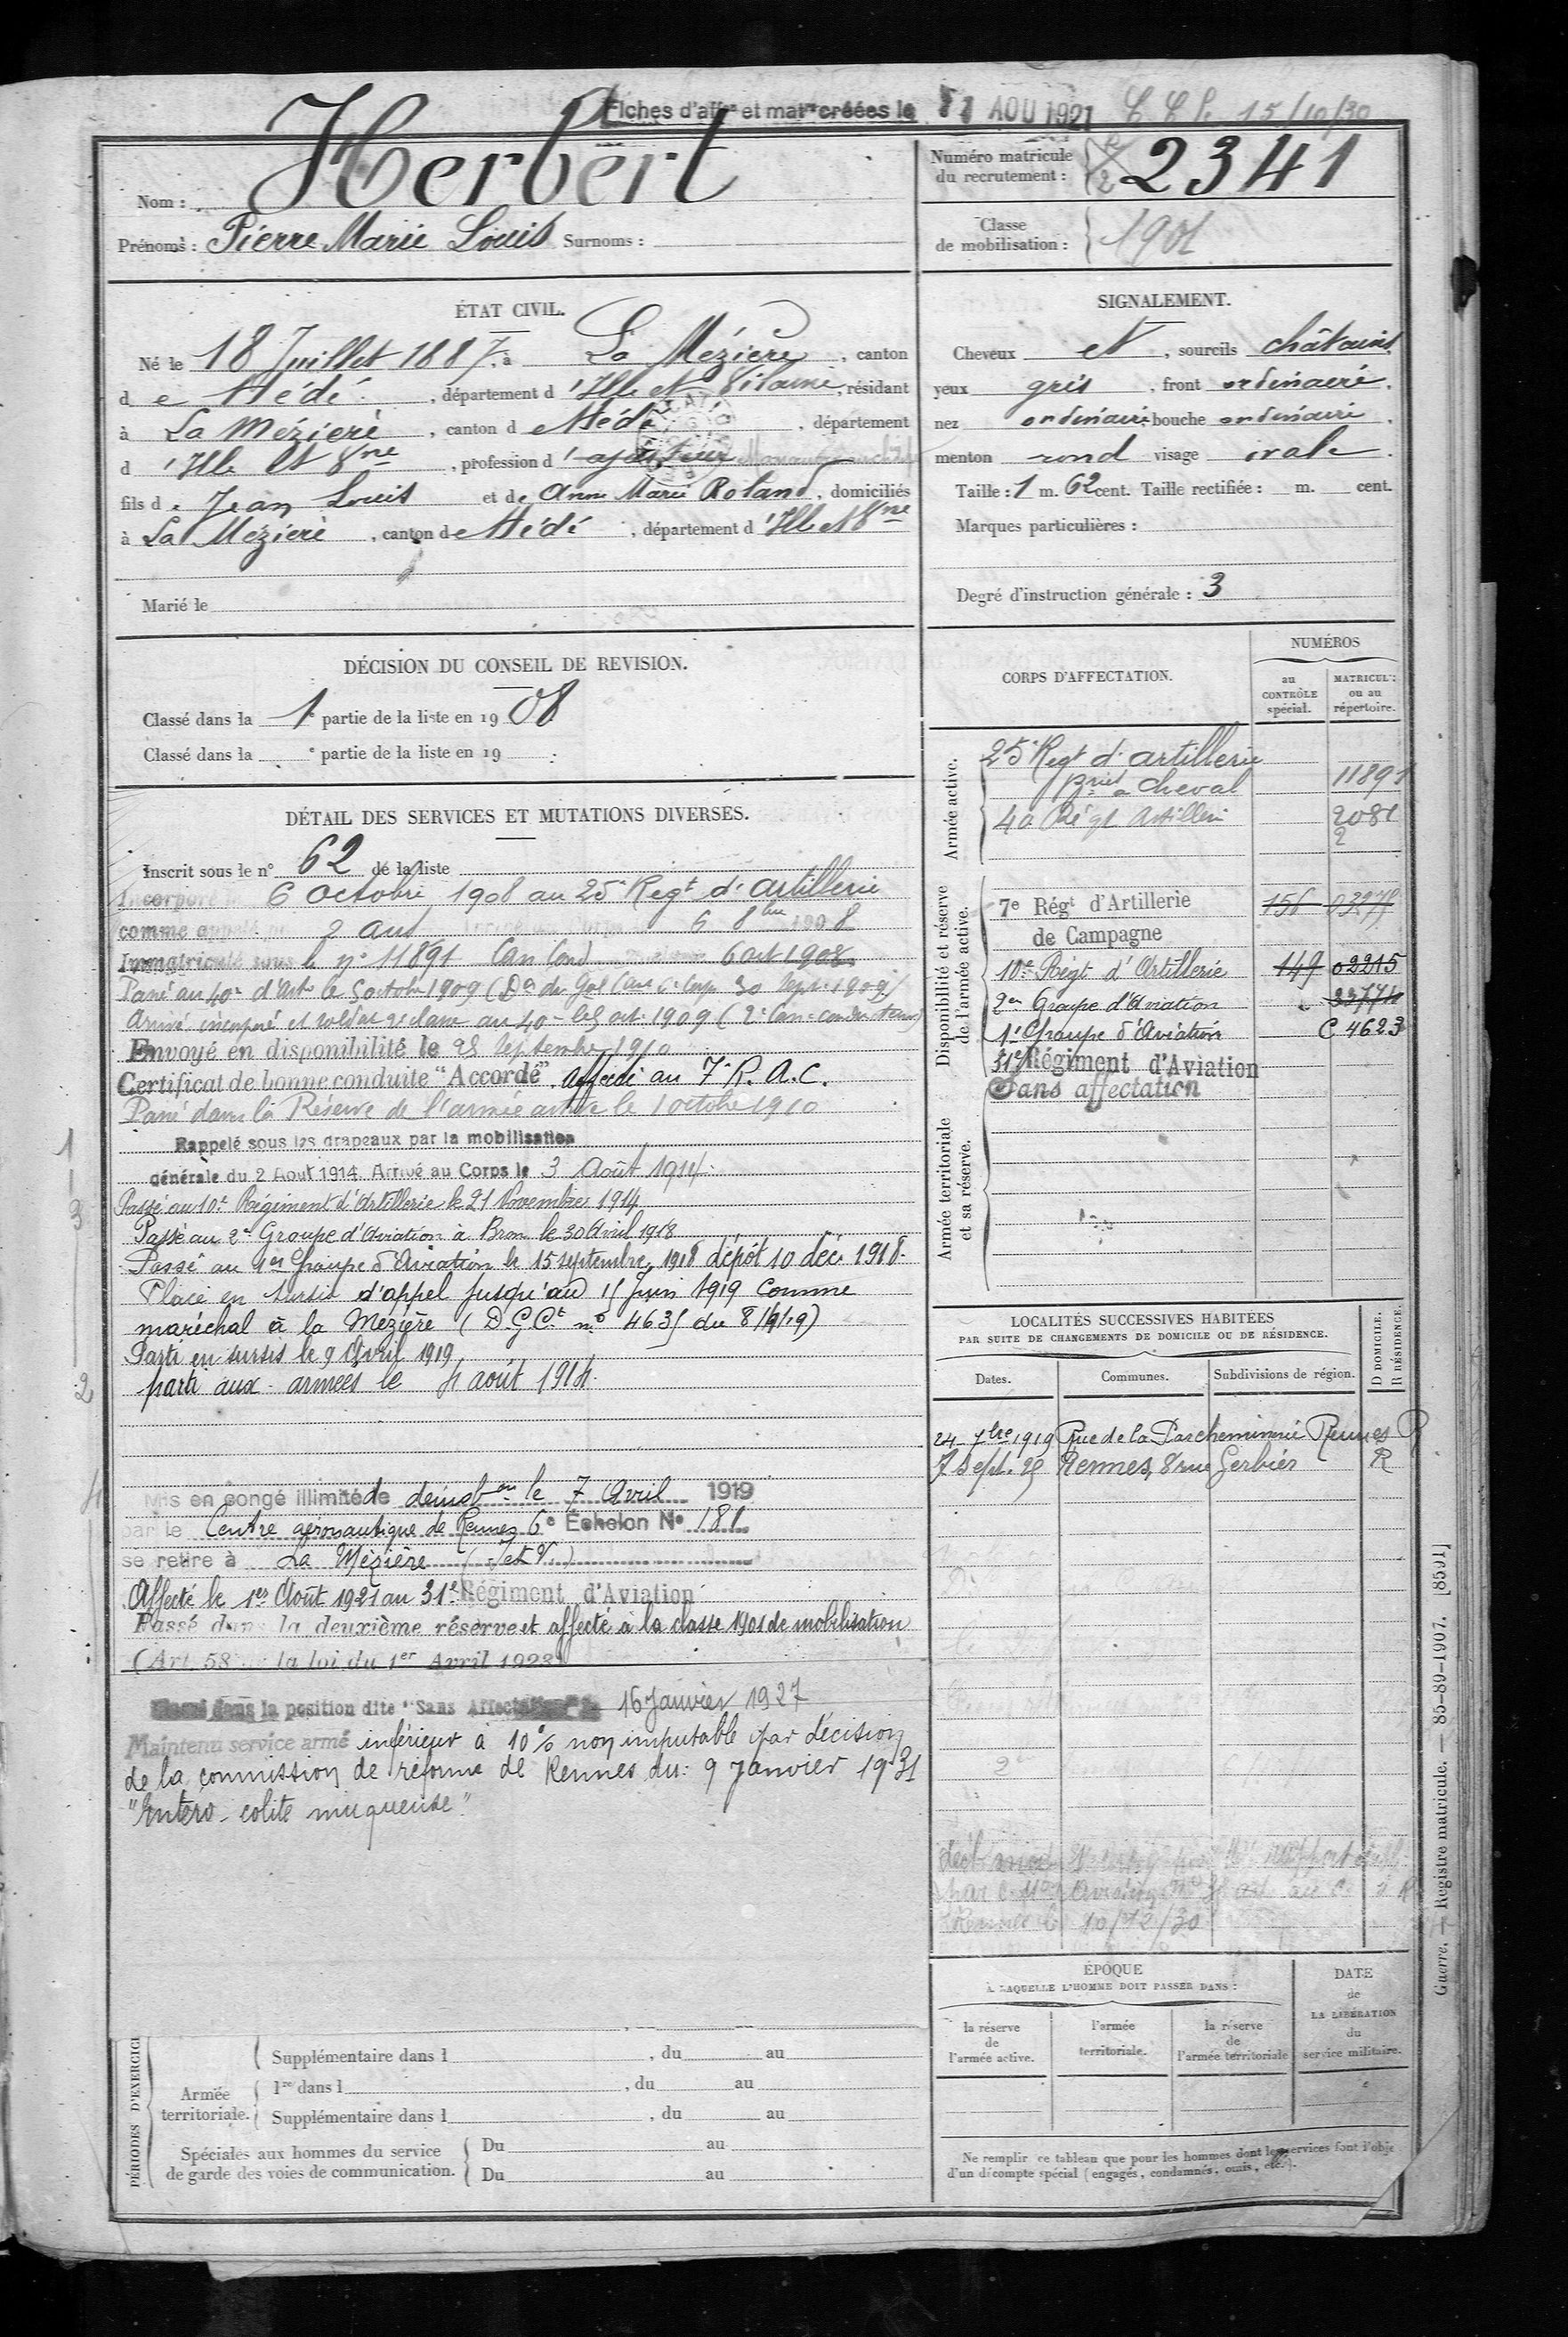 Fiches d'aff^on et mat^le créées le 1 AOU 1921 15/10/30
Nom : Herbert
Prénoms : Pierre Marie Louis Surnoms :
Numéro matricule
du recrutement : 2341
Classe
de mobilisation : 1901
ÉTAT CIVIL.
Né le 18 Juillet 1887, à La Mézière, canton
de Hédé, département d'Ille et Vilaine, résidant
à La Mézière, canton d Hédé, département
d'Ille et Vne, profession d'ajusteur
fils de Jean Louis et de Anne Marie Roland, domiciliés
à La Mézière, canton de Hédé, département d'Ille et Vne
Marié le
SIGNALEMENT.
Cheveux et, sourcils châtains
yeux gris, front ordinaire,
nez ordinaire bouche ordinaire
menton rond visage ovale.
Taille : 1 m. 62 cent. Taille rectifiée : m. cent.
Marques particulières :
Degré d'instruction générale : 3
DÉCISION DU CONSEIL DE REVISION.
Classé dans la 1e partie de la liste en 1908
Classé dans la e partie de la liste en 19 .
DÉTAIL DES SERVICES ET MUTATIONS DIVERSES.
Inscrit sous le n° 62 de la liste
Incorporé 6 octobre 1908 au 25e Régt d'artillerie
comme appelé 2 ans 6 8bre 1908
Immatriculé sous le n° 11891 Can Cond 6 oct 1908
Passé au 40e d'Art le 5 octobre 1909 (Don du Gal Ct le 6e Corps 30 Sept. 1909)
Arrivé incorporé et soldat 2e classe au 40e le 5 oct. 1909 (2e Can. conducteur)
Envoyé en disponibilité le 25 septembre 1910
Certificat de bonne conduite "Accordé". Affecté au 7e R. A. C.
Passé dans la Réserve de l'armée active le 1 octobre 1910
Rappelé sous les drapeaux par la mobilisation
générale du 2 Août 1914. Arrivé au Corps le 3 Août 1914.
Passé au 10e Régiment d'Artillerie le 21 Novembre 1914
Passé au 2e Groupe d'Aviation à Bron le 30 Avril 1918
Passé au 1er Groupe d'Aviation le 15 septembre 1918 dépôt 10 déc 1918.
Placé en sursis d'appel jusqu'au 15 juin 1919 comme
maréchal à la Mézière (D.G.Ct n° 4635 du 8/4/19)
Parti en sursis le 9 Avril 1919
parti aux armées le 4 août 1914.
1
3
2
4
Mis en congé illimité de démobon le 7 Avril 1919
par le Centre aéronautique de Rennes 6e Échelon N° 181
se retire à La Mézière (I et V)
Affecté le 1er Août 1921 au 31e Régiment d'Aviation
Passé dans la deuxième réserve et affecté à la classe 1901 de mobilisation
(Art. 58 de la loi du 1er Avril 1923)
Classé dans la position dite "Sans Affectation" le 16 Janvier 1927
Maintenu service armé inférieur à 10% non imputable par décision
de la commission de réforme de Rennes du : 9 Janvier 1931
"Entéro-colite muqueuse"
CORPS D'AFFECTATION.
NUMÉROS
au
CONTRÔLE
spécial.
MATRICULE
ou au
répertoire.
Armée active.
25e Régt d'artillerie
à cheval 11891
40 Régt Artillerie 2081
2
Disponibilité et réserve
de l'armée active.
7e Régt d'Artillerie 156
de Campagne
10e Régt d'Artillerie 149 02215
2e Groupe d'Aviation 33774
1er Groupe d'Aviation C 4623
31e Régiment d'Aviation
Sans affectation
Armée territoriale
et sa réserve.
LOCALITÉS SUCCESSIVES HABITÉES
PAR SUITE DE CHANGEMENTS DE DOMICILE OU DE RÉSIDENCE.
Dates. Communes. Subdivisions de région.
D DOMICILE.
R RÉSIDENCE.
24 7bre 1919 Rue de la Parcheminerie Rennes R
7 sept. 25 Rennes, 8 rue Gerbier R
Rennes le 10/12/30
ÉPOQUE
À LAQUELLE L'HOMME DOIT PASSER DANS :
la réserve
de
l'armée active.
l'armée
territoriale.
la réserve
de
l'armée territoriale
DATE
de
LA LIBÉRATION
du
service militaire.
Ne remplir ce tableau que pour les hommes dont les services font l'obje
d'un décompte spécial (engagés, condamnés, omis, etc.).
PÉRIODES D'EXERCICE
Armée
territoriale.
Supplémentaire dans l , du au
1re dans l , du au
Supplémentaire dans l , du au
Spéciales aux hommes du service
de garde des voies de communication.
Du au
Du au
Guerre. — Registre matricule. — 85-89-1907. [8591]